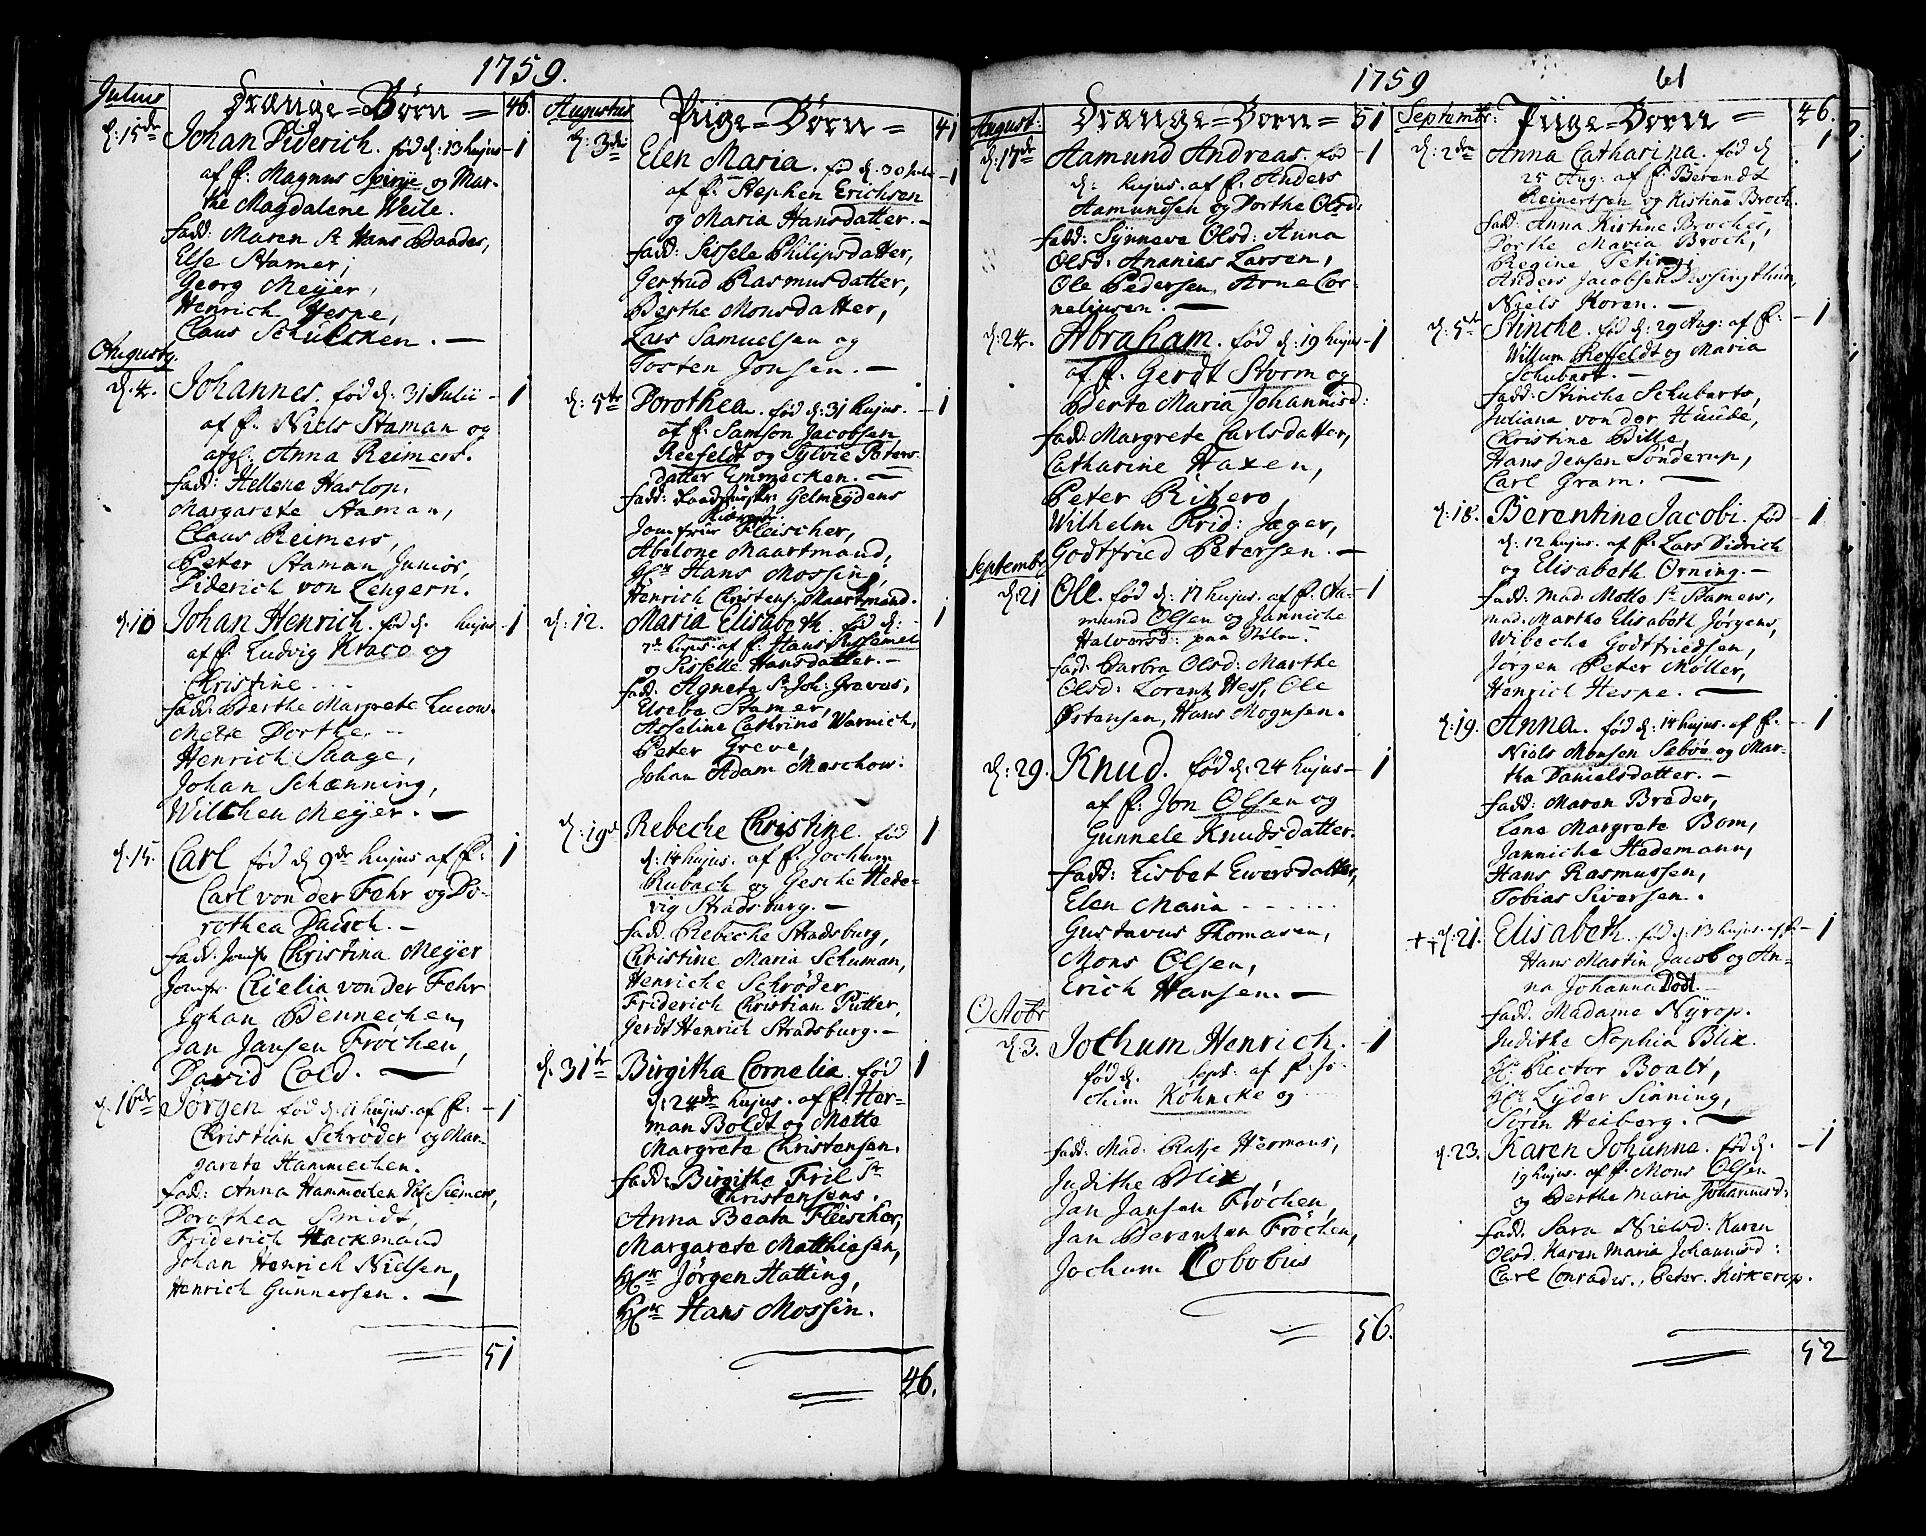 1759.
Julius
Drænge=Børn=
46.
d: 15de
Johan Diderich. fød d: 13 hujus -1
af f: Magnus Spinje og Mar-
the Magdalene Weile.
fadd: Maren Sr Hans Baades,
Else Stamer,
Georg Meÿer,
Henrich Hespe,
Claus Schülcken. —
Augusty.
d: 4.
Johannes. fød d: 31 Julii - 1
af f: Niels Staman og
afgl: Anna Reimers.
fadd: Hellene Haslop,
Margarete Staman,
Claus Reimers,
Peter Staman Junior,
Diderich von Lengern.
d: 10
Johan Henrich. fød d. hujus -1
af f: Ludvig Kraco og
Christine ...
fadd: Berthe Margrete Lucow.
Mette Dorthe ...
Henrich Saage,
Johan Schænning,
Willchen Meÿer. —
d: 15.
Carl fød d 9de hujus af f: 1
Carl von der Fehr og Do-
rothea Dausch. -
fadd: Jomfr Christina Meÿer
Jomfr: Cicelia von der Fehr
Johan Bennechen,
Jan Jansen Frochen,
David Cold. —
d. 16de
Jørgen fød d: 11 hujus. af f: -1
Christian Schrøder og Mar-
garete Hammechen.
fadd: Anna Hammechen Siemers,
Dorothea Smidt,
Friderich Hackmand
Johan Henrich Nielsen,
Henrich Gunnersen. —
51
Augustus
Piige=Børn=
41
d: 3de
Elen Maria. fød d. 30 Julii -1
af f: Stephen Erichsen
og Maria Hansdatter. -
fadd: Sissele Philipsdatter,
Gertrud Rasmusdatter,
Berthe Monsdatter,
Lars Samuelsen og
Tosten Jonsen. —
d: 5te
Dorothea. fød d: 31 hujus. -1
af f: Samson Jacobsen
Reefeldt og Sÿlvie Peters
datter Emmecken. —
fadd: Gelmeÿdens
Jomfrür Fleischer,
Abelone Maartmand,
Hr Hans Mossin,
Henrich Christens: Maartmand.
d: 12.
Maria Elisabeth fød d: - 1
7de hujus. af f: Hans
og Sisselle Hansdatter. -
fadd. Agnete Sr Joh: Greves,
Elsebe Stamer,
Asseline Cathrine Warnich,
Peter Greve,
Johan Adam Maschow.
d: 19de
Rebeche Christine. fød 1
d: 14 hujus. af f. Jochum
Rubach og Gesche Hede-
vig Stradsburg. -
fadd. Rebeche Stradsburg,
Christine Maria Schuman,
Henriche Schrøder,
Friderich Christian Pütter,
Gerdt Henrich Stradsburg. -
d. 31te
Birgitha Cornelia. fød 1
d: 24de hujus. af f: Her-
man Boldt og Mette
Margrete Christensen.
fadd: Birgithe Friil Sr
Christensens.
Anna Beata Fleischer,
Margarete Matthiesen,
Hr Jørgen Hatting,
Hr Hans Mossin.
46.
1759
61
August:
Drænge=Børn=
51
d: 17de
Aamund Andreas. fød -1
d: hujus. af f: Anders
Aamundsen og Dorthe Olsd:
fadd: Sÿnneve Olsd: Anna
Olsd: Ananias Larsen,
Ole Pedersen, Arne Cor-
neliusen. —
d: 24.
Abraham. fød d: 19 hujus -1
af f: Gerdt Storm og
Berte Maria Johannisd:
fadd: Margrete Carlsdatter,
Catharine Haxen,
Peter Ritzero,
Wilhelm Frid: Jæger,
Godtfried Petersen. —
September
d: 21
Ole. fød d: 17 hujus. af f: Aa- -1
mund Olsen og Janniche
Halvorsd: paa Stølen.
fad: Barbra Olsd: Marthe
Olsd: Lorentz Hess, Ole
Østensen, Hans Mognsen.
d: 29.
Knud. fød d: 24 hujus -1
af f: Jon Olsen og
Gunnele Knudsdatter.
fadd: Lisbet Ewersdatter,
Elen Maria ......
Gustavus Thomasen,
Mons Olsen,
Erich Hansen. —
Octobr
d: 3.
Jochum Henrich. -1
fød d. Sept: af f: Jo-
chim Køhncke og ...
fadd. Mad. Hermans,
Judithe Blix
Jan Jansen Frochen,
Jan Berentzen Frochen,
Jochum Cobobus
56.
Septembr:
Piige=Born=
46.
d: 2den
Anna Catharina. fød d 1
25 Aug: af f: Berendt
Reinertsen og Kistine Broch.
fadd: Anna Kirstine Broches,
Dorthe Maria Broch,
Regine
Anders Jacobsen
Niels Koren. —
d: 5te
Stinche. fød d: 29 Aug: af f: -1
Willum Reffeldt og Maria
Schubert. -
fadd: Stinche Schuberts,
Juliana von der Huude,
Christine Bille,
Hans Jensen Sønderup,
Carl Gram. —
d: 18.
Berentine Jacobi. fød -1
d: 12 hujus. af f: Lars Didrich
og Elisabeth Orning. -
fadd: Mad: Motto Sr Stamers,
mad: Marthe Elisabeth Jørgens,
Wibeche Godtfriedsen,
Jørgen Peter Møller,
Henrich Hespe. —
d: 19.
Anna. fød d: 14 hujus. af f: -1
Niels Monsen Sæbøe og Mar-
tha Danielsdatter. -
fadd: Maren Breder,
Lene Margrete Bom,
Janniche Hedemann,
Hans Rasmussen,
Tobias Siversen.
++ d: 21.
Elisabeth. fød d: 13 hujus. af f: -1
Hans Martin Jacob og An-
na Johanna Dodt.
fadd. Madame Nÿrop.
Judithe Sophia Blix.
Hr Rector Boalt,
Hr Lÿder Sinning,
Sørin Heiberg. —
d: 23.
Karen Johanne. fød d: -1
19 hujus. af f: Mons Olsen
og Berthe Maria Johannisd:
fadd. Sara Nielsd: Karen
Olsd. Karen Maria Johannisd:
Carl Conradis, Peter Kirkerop.
52